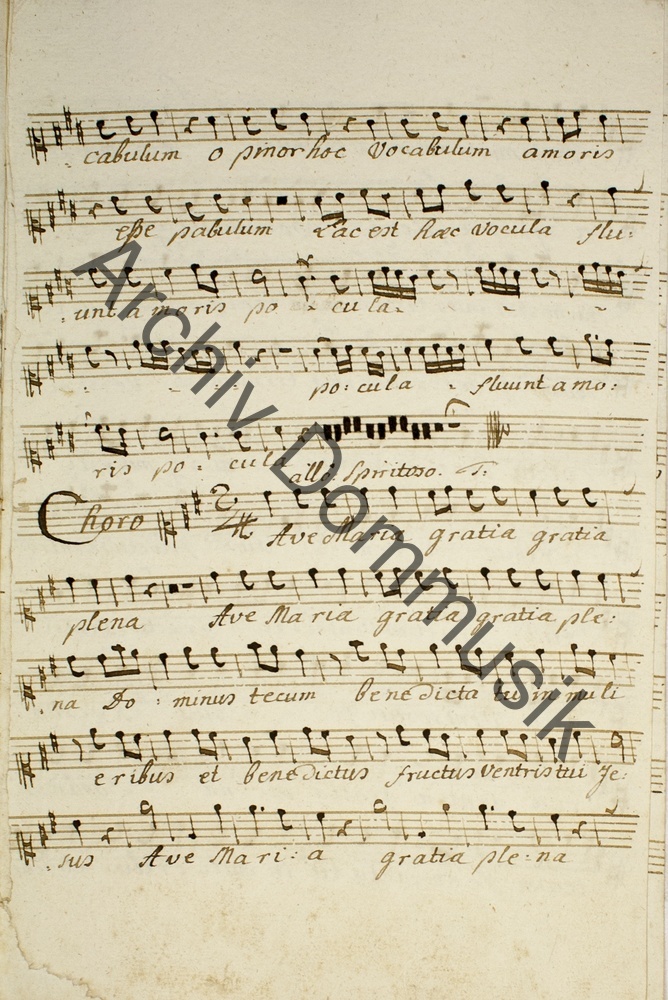 cabulum o pmor hoc Vocabulum amoris
esse pabulum Lac est hæc vocula flu:
unt amoris po - cula -
po: cula - fluunt amo:
ris po - cula
allo: Spiritoso. T:
Choro 2/4 Ave Maria gratia gratia
plena Ave Maria gratia gratia ple:
na Do: minus tecum benedicta tu in muli
eribus et benedictus fructus Ventris tui Je:
sus Ave Mari: a gratia ple: na
Archiv Dommusik